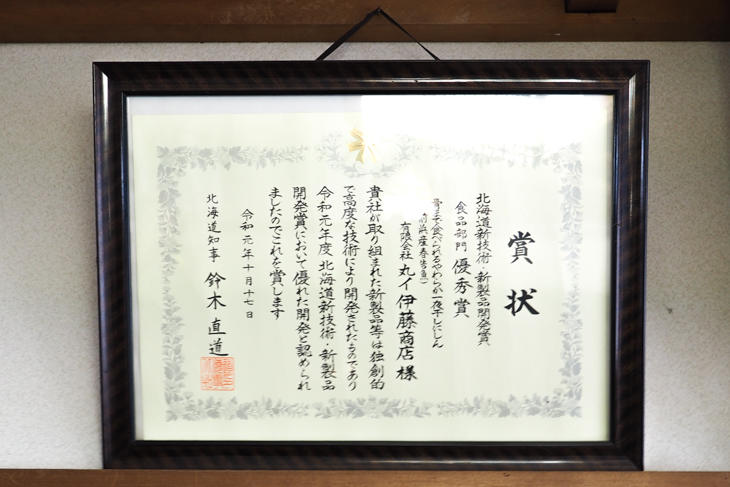 賞状
北海道新技術・新製品開発賞
食品部門 優秀賞
骨まで食べられるやわらか一夜干しにしん
(前浜産春告魚)
有限会社 丸イ伊藤商店 様
貴社が取り組まれた新製品等は独創的
で高度な技術により開発されたものであり
令和元年度北海道新技術・新製品
開発賞において優れた開発と認められ
ましたのでこれを賞します
令和元年十月十七日
北海道知事 鈴木直道